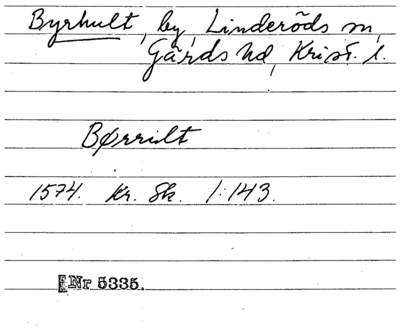 Byrhult, by, Linderöds sn,
Gärds hd, Krist. l.
Børrilt
1574. Kr. Sk. 1:143.
Nr 5335.